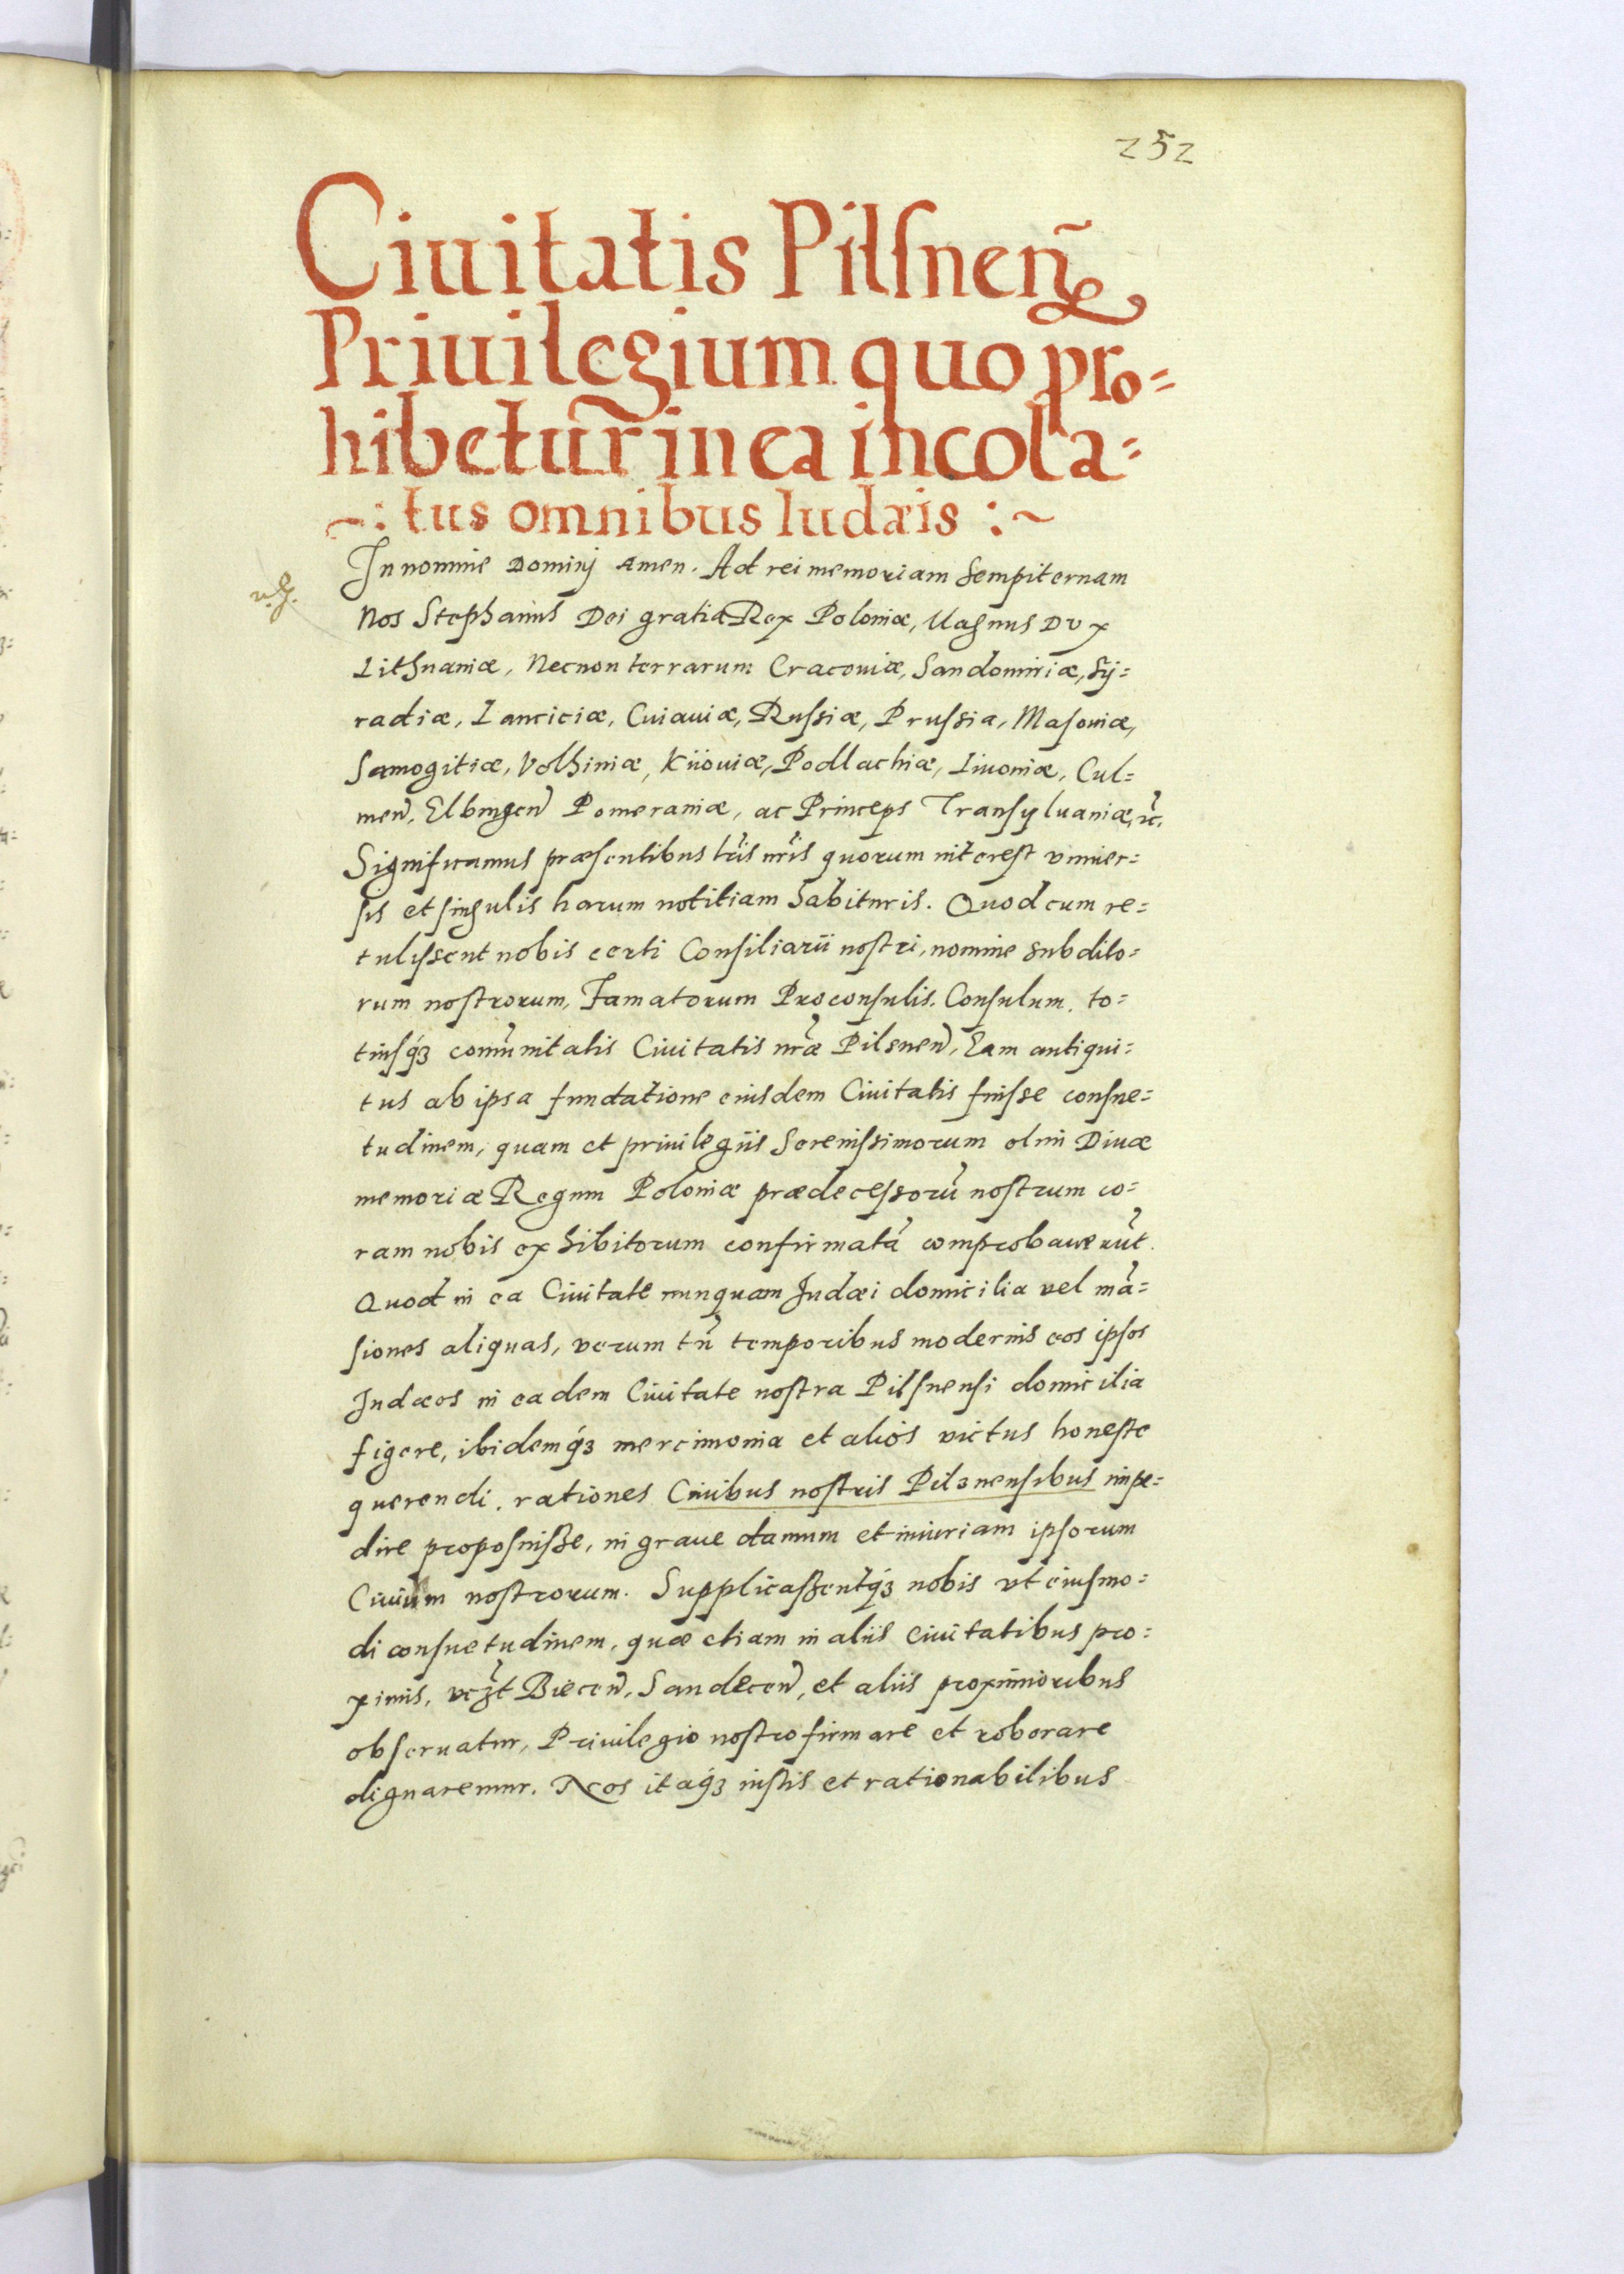 252
Ciuitatis Pilsneñ
Priuilegium quo pro=
hibetur in ea incola=
~: tus omnibus Iudæis :~
In nomine Dominj Amen. Ad rei memoriam sempiternam
Nos Stephanus Dei gratia Rex Poloniæ, Magnus Dux
Lithuaniæ, Necnon terrarum Cracouiæ, Sandomiriæ, Sy=
radiæ, Lanciciæ, Cuiauiæ, Russiæ, Prussiæ, Masouiæ,
Samogitiæ, Volhiniæ, Kiiouiæ, Podlachiæ, Liuoniæ, Cul=
meñ, Elbingeñ Pomeraniæ, ac Princeps Transyluaniæ, ꝛc̃.
Significamus præsentibus lr̃is nr̃is quorum interest vniuer=
sis et singulis harum notitiam habituris. Quod cum re=
tulissent nobis certi Consiliarii nostri, nomine subdito=
rum nostrorum, Famatorum Proconsulis. Consulum, to=
tiusq́ꝫ com̃unitatis Ciuitatis nr̃æ Pilsneñ, Eam antiqui=
tus ab ipsa fundatione eiusdem Ciuitatis fuisse consue=
tudinem, quam et priuilegiis Serenissimorum olim Diuæ
memoriæ Regum Poloniæ prædecessorũ nostrum co=
ram nobis exhibitorum confirmatã comprobauerũt.
Quod in ea Ciuitate nunquam Judæi domicilia vel mã=
siones aliquas, verum tñ temporibus modernis eos ipsos
Judæos in eadem Ciuitate nostra Pilsnensi domicilia
figere, ibidemq́ꝫ mercimonia et alios victus honeste
querendi, rationes Ciuibus nostris Pilsnensibus impe=
dire proposuisse, in graue damnum et iniuriam ipsorum
Ciuium nostrorum. Supplicassentq́ꝫ nobis vt eiusmo=
di consuetudinem, quæ etiam in aliis Ciuitatibus pro=
ximis, vꝫt̃ Bieceñ, Sandeceñ, et aliis proximioribus
obseruatur, Priuilegio nostro firmare et roborare
dignaremur. Nos itaq́ꝫ iustis et rationabilibus